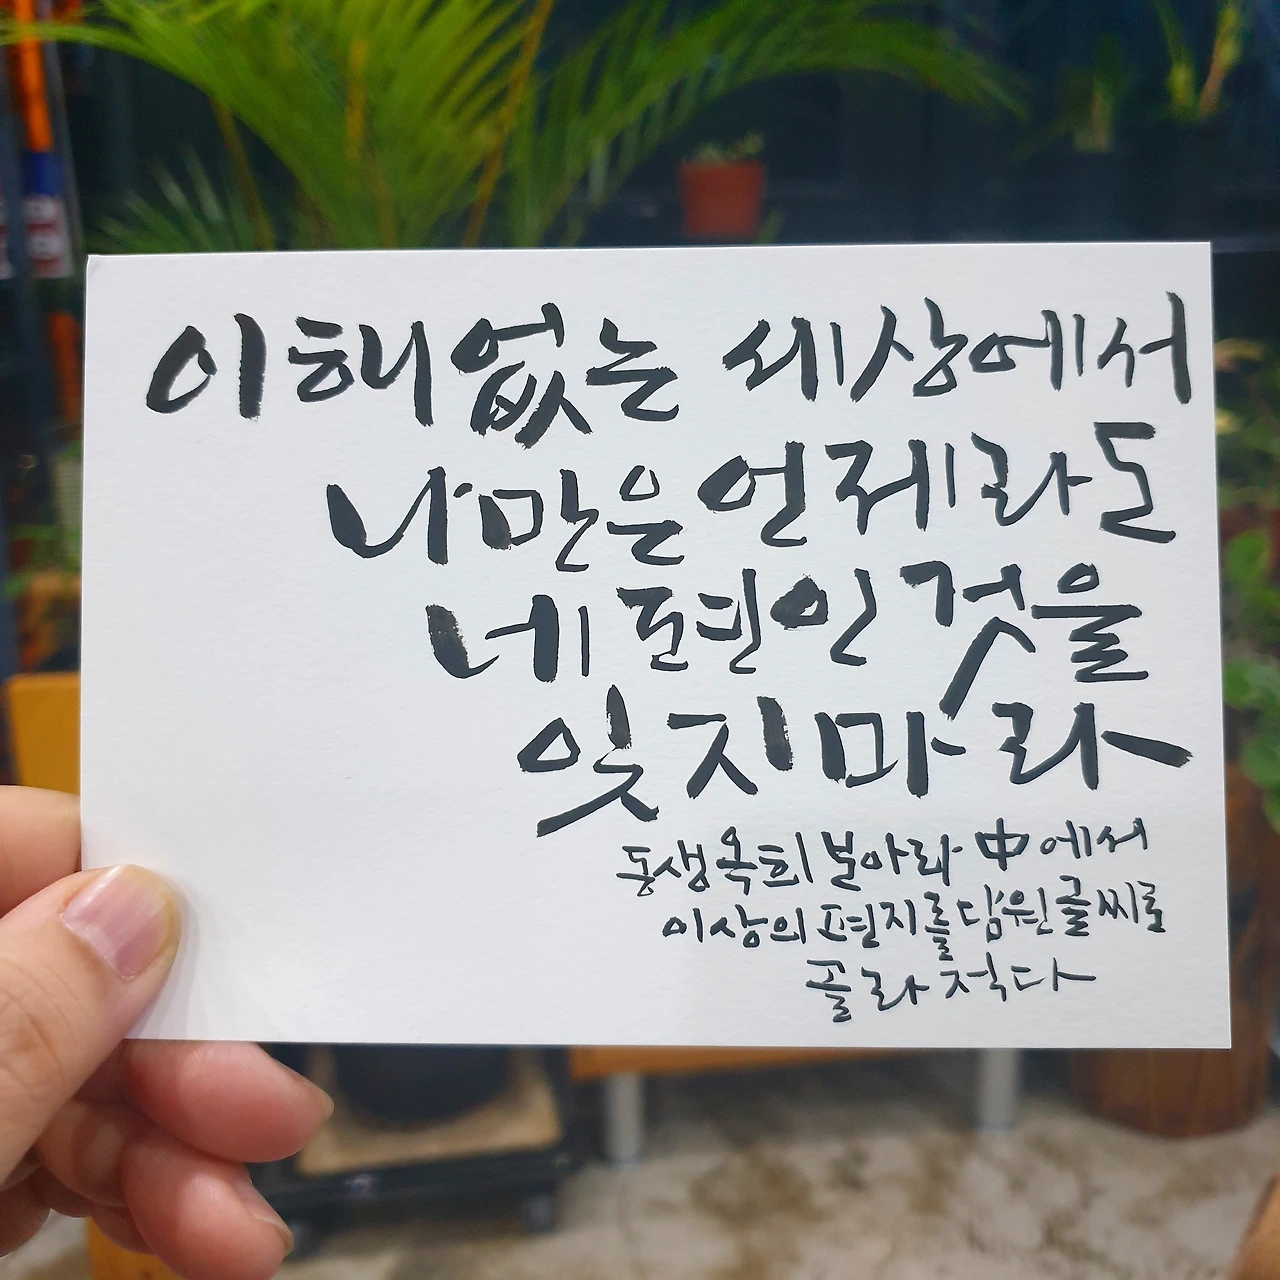 이해없는 세상에서
나만은 언제라도
네 편인 것을
잊지마라
동생 옥희 보아라 中에서
이상의 편지를 담원글씨로
골라 적다